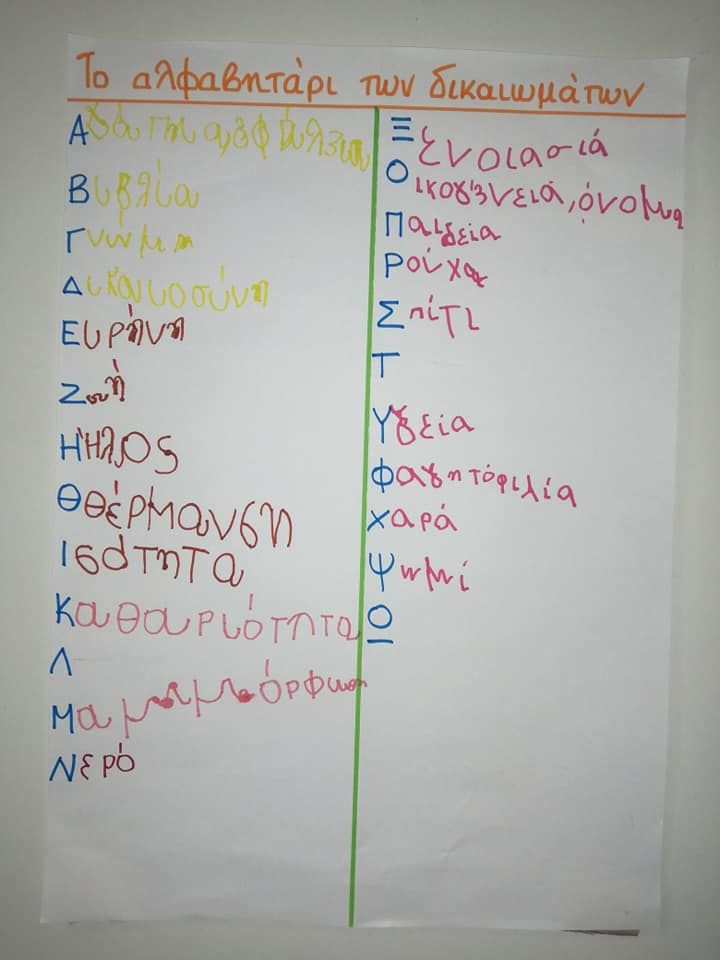 Το αλφαβητάρι των δικαιωμάτων
Βιβλία
Γνώμη
Δικαιοσύνη
Ευρήνη
Ζωή
ΗΉλιος
Θθέρμανση
Ισότητα
Καθαριότητα
Λ
Νερό
Ξένοιασιά
Οικογένειά, όνομα
Παιδεία
Ρούχα
Σπίτι
Τ
Υγεία
Φαγητόφιλία
Χαρά
Ψωμί
Ω